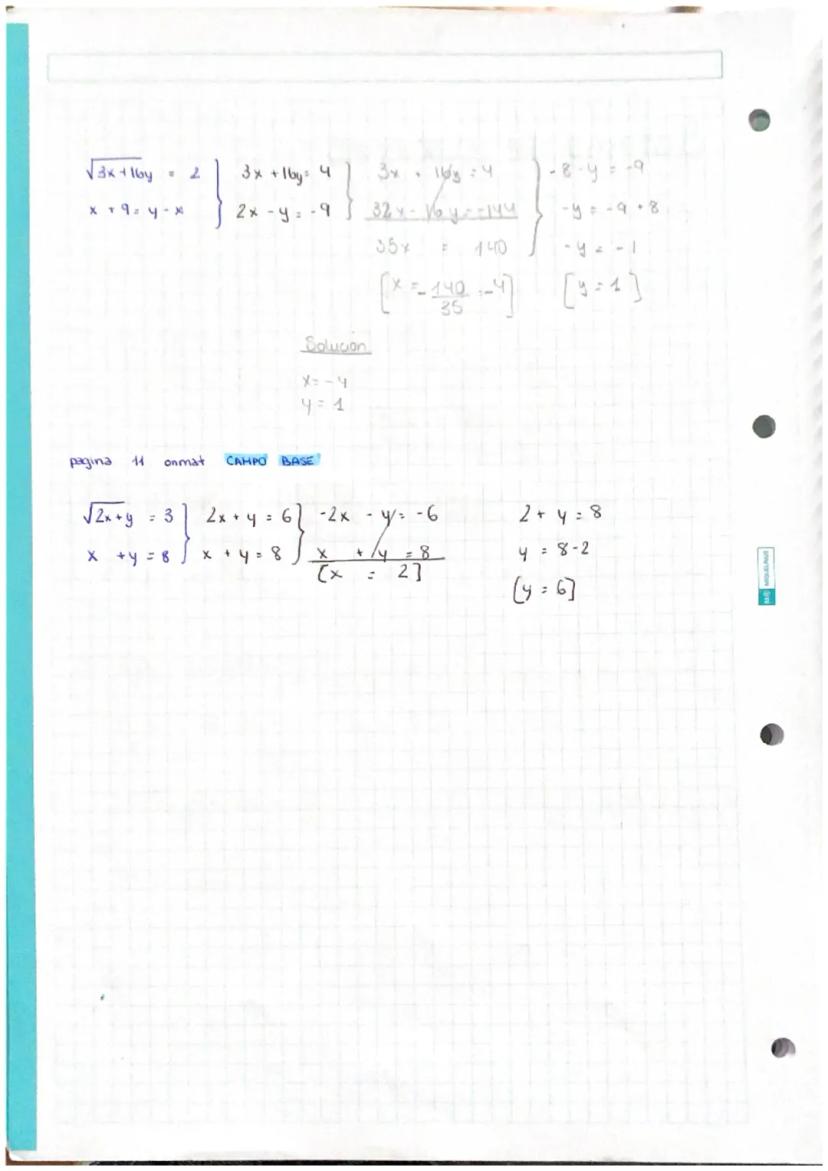 √3x+16y = 2 } 3x + 16y = 4 } 3x + 16y = 4 } -8 - y = -9
x + 9 = y - x } 2x - y = -9 } 32x - 16y = -144 } -y = -9 + 8
35x = 140 -y = -1
[x = -140/35 = -4] [y = 1]
Solución
x = -4
y = 1
pagina 11 onmat CAMPO BASE
√2x+y = 3 } 2x + y = 6 } -2x - y = -6 2 + y = 8
x + y = 8 } x + y = 8 } x + y = 8 y = 8-2
[x = 2] [y = 6]
MIQUELRIUS